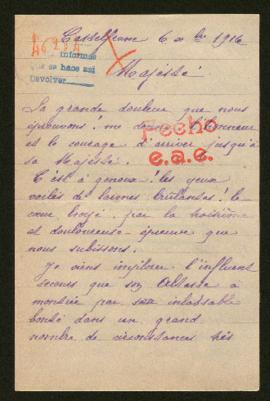 Castelferrus 6 Xbre 1916
informes
que se hace así
Devolver
Majesté
Sa grande douleur que nous
éprouvons! me donne l'honneur
et le courage d'arriver jusqu'à
sa Majesté.
Fecho
e.a.e.
C'est à genoux! les yeux
voilés de larmes brûlantes! le
cœur broyé par la
et douloureuse épreuve que
nous subissons.
Je viens implorer l'influent
secours que son Altesse a
montrée par son inlassable
bonté dans un grand
nombre de circonstances très